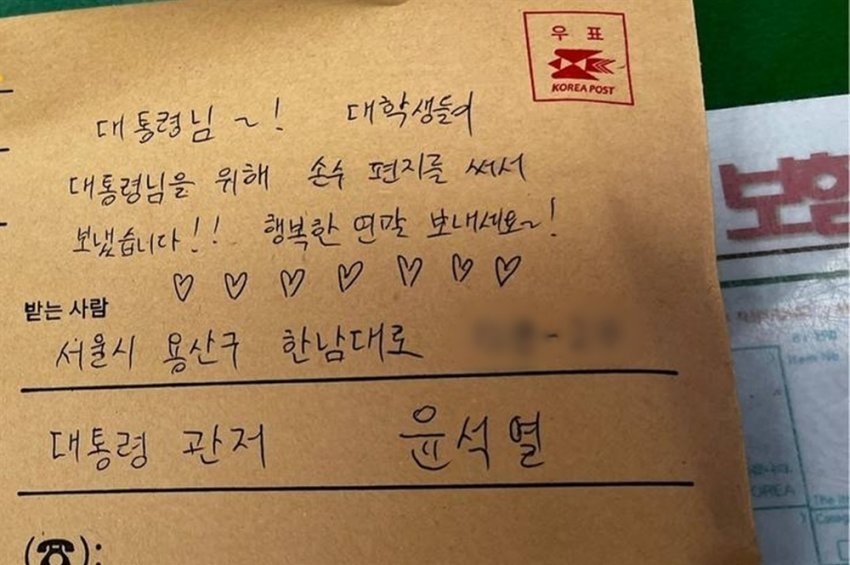 우 표
KOREA POST
대통령님 ~! 대학생들이
대통령님을 위해 손수 편지를 써서
보냈습니다!! 행복한 연말 보내세요~!
♡ ♡ ♡ ♡ ♡ ♡ ♡
받는 사람
서울시 용산구 한남대로
대통령 관저 윤석열
(☎):
보험
Item No
OREA